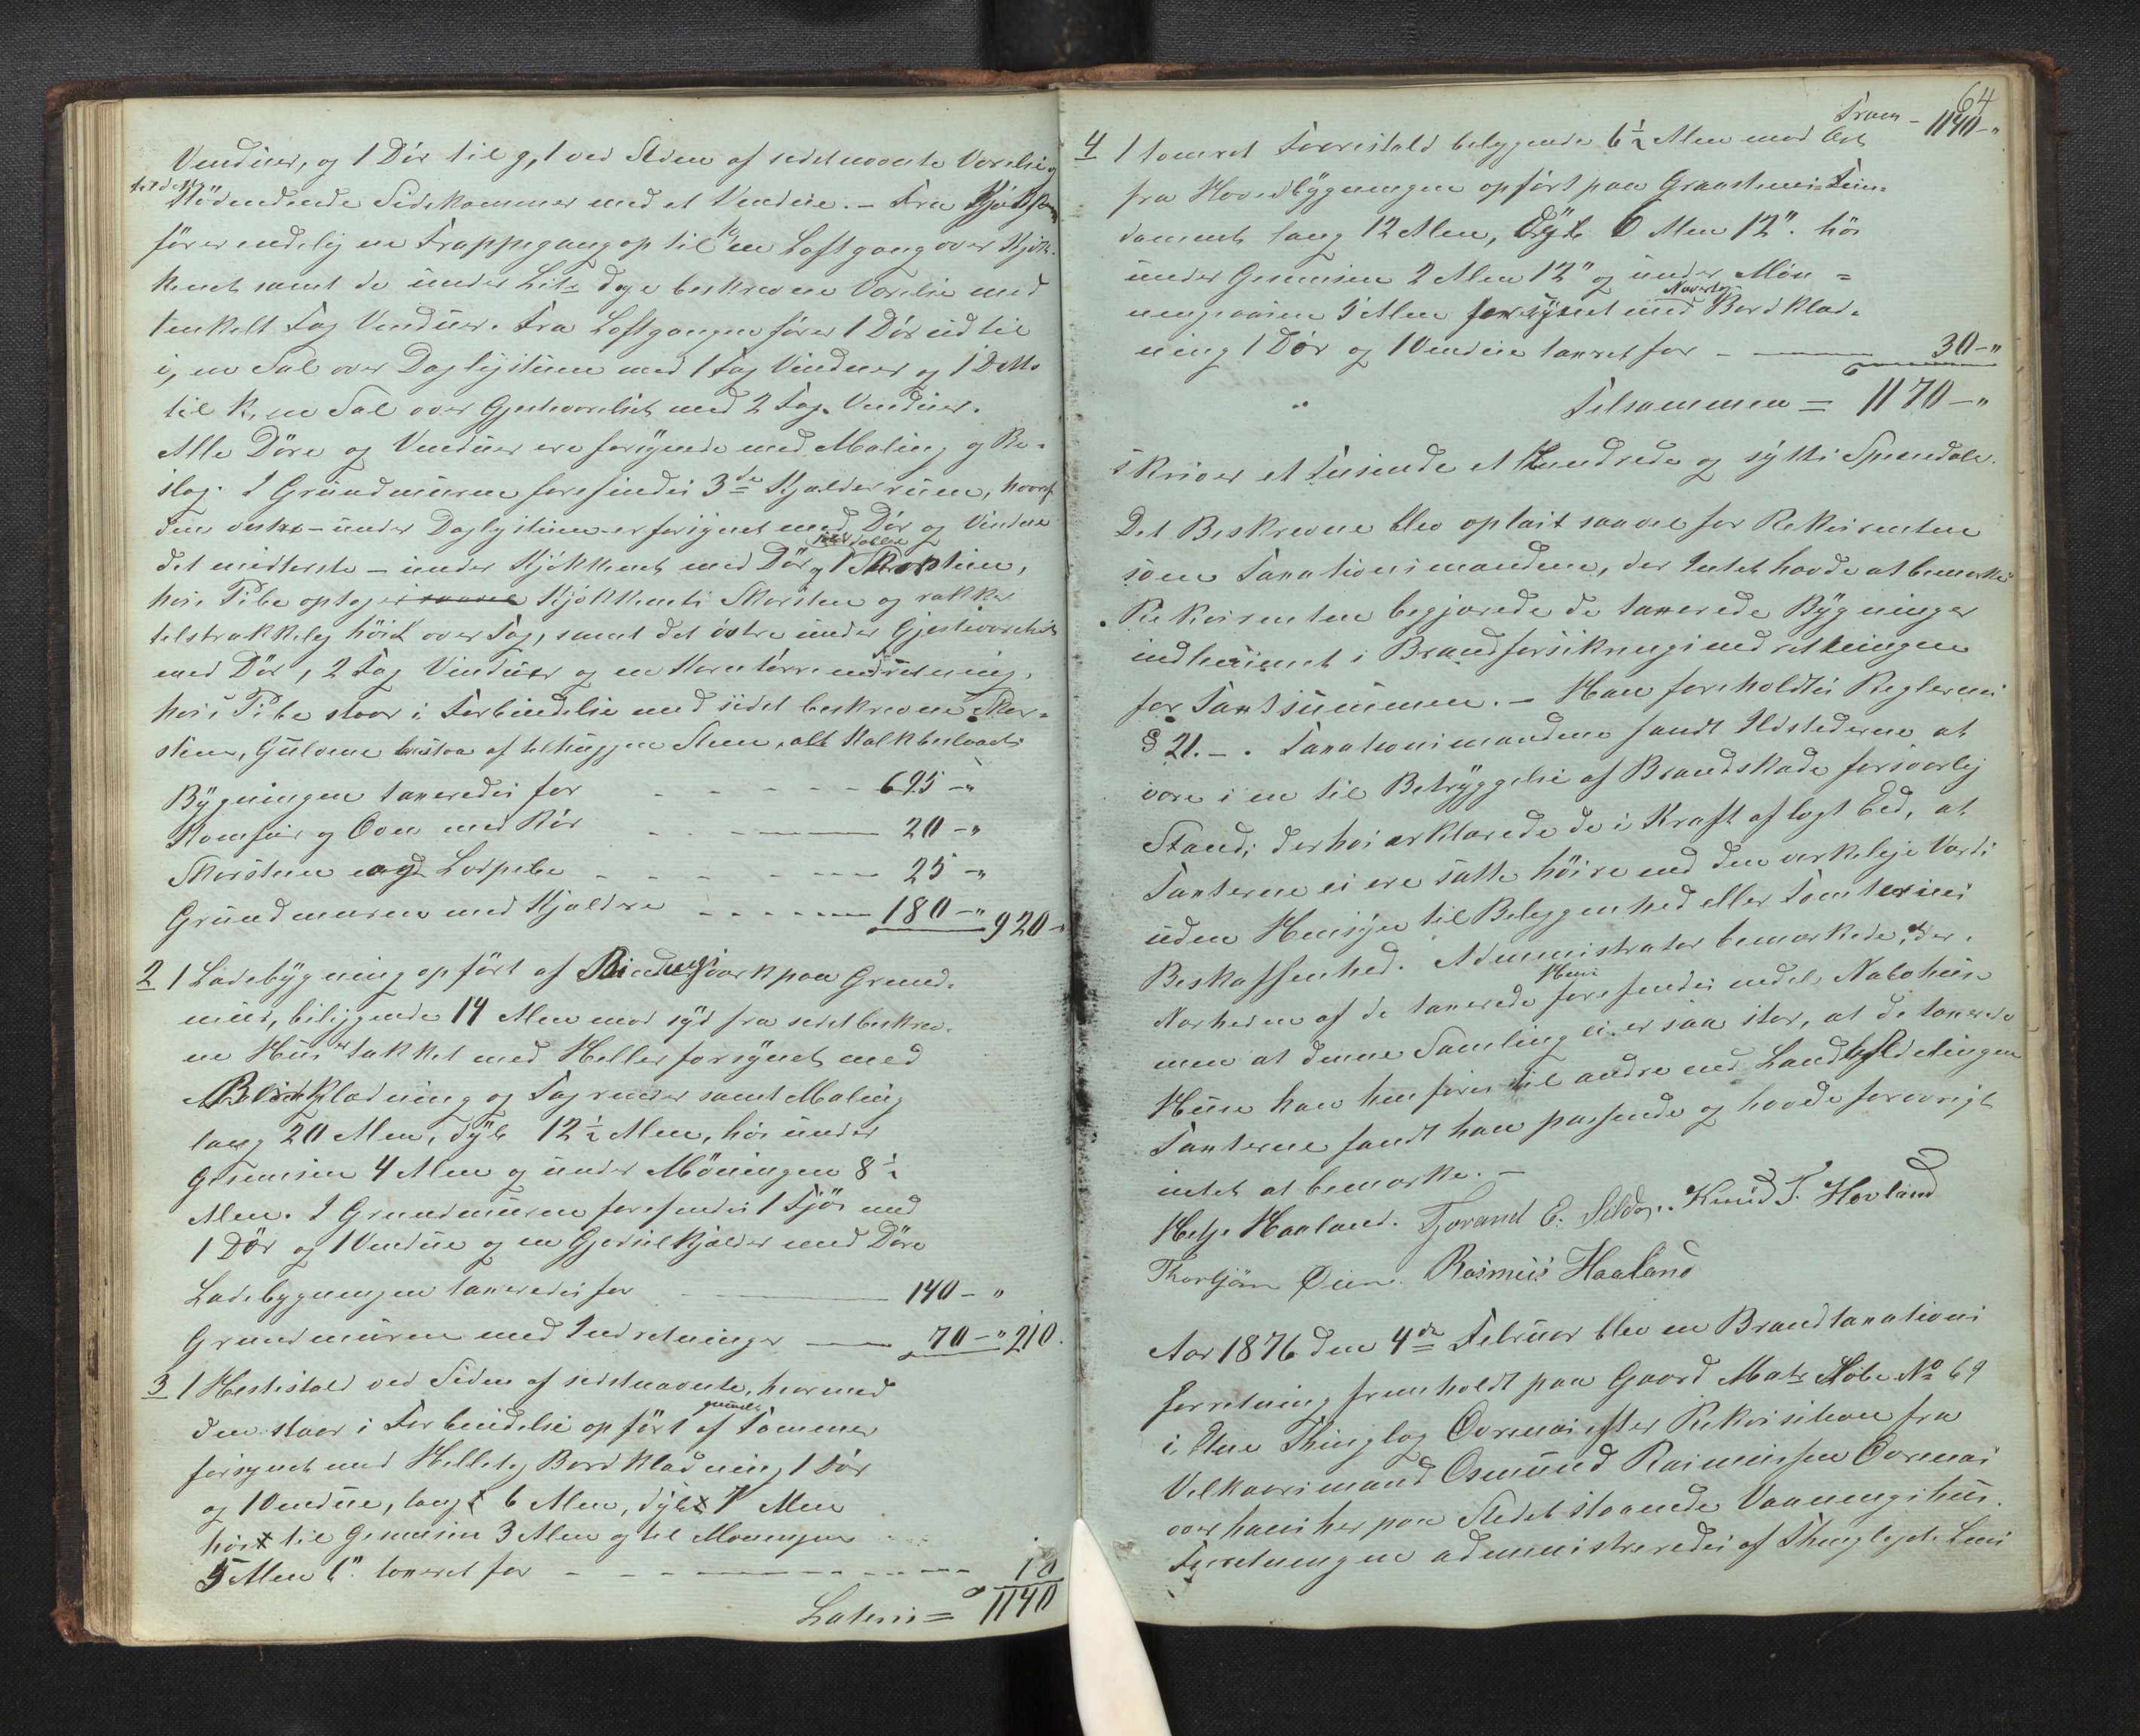 Vinduer, og 1 Dör til g, 1 ved Siden af sidstnævnte Værelse
til dette stödendende Sidekammer med et Vindue. – Fra Kjökken
förer endelig en Trappegang op til h, en Loftgang over Kjök-
kenet samt de under Litr d og e beskrevne Værelse med
enkelt Fag Vinduer. Fra Loftgangen förer 1 Dör ud til
i, en Sal over Dagligstuen med 1 Fag Vinduer og 1 Ditto
til k, en Sal over Gjesteværelset med 2 Fag Vinduer.
Alle Döre og Vinduer ere forsynede med Maling og Be-
slag. I Grundmuren forefindes 3de Kjælderrum, hvoraf
den vestre – under Dagligstuen – er forsynet med Dör og Vindue
det midterste – under Kjökkenet med Dör og 1 Skorsten,
hvis Pibe optager Kjökkenets Skorsten og rækker
tilstrækkelig höit over Tag, samt det östre under Gjesteværelset
med Dör, 2 Fag Vinduer og en Korntörreindretning,
hvis Pibe staar i Forbindelse med sidst beskrevne Skor-
sten, Gulvene bestaa af tilhuggen Sten, alt Kalkbeslaaet
Bygningen taxeredes for - - - - - 695 – "
Komfur og Ovn med Rör - - - 20 – "
Skorsten og Lospibe - - - - - 25 – "
Grundmuren med Kjeldre - - - - 180 – " 920 –
2 1 Ladebygning opført af Bindingsværk paa Grund-
mur, beliggende 14 Alen mod syd fra sidst beskrev-
ne Hus er takket med Heller forsynet med
Bordklædning og Tagrender samt Maling
lang 20 Alen, dyb 12 ½ Alen, höi under
Gesimsen 4 Alen og under Möningen 8 ½
Alen. I Grundmuren forefindes 1 Fjös med
1 Dör og 1 Vindue og en Gjödselkjelder med Döre
Ladebygningen taxeredes for 140 – "
Grundmuren med Indretninger 70 – " 210.
3 1 Hestestald ved Siden af sidstnævnte, hvormed
den staar i Forbindelse opfört af Tømmer
forsynet med Helletag Bordklædning 1 Dör
og 1 Vindue, lang 6 Alen, dyb 7 Alen
höi til Gesimsen 3 Alen og til Möningen
5 Alen 6". taxeret for - - - - 10
Lateris = 1140
64
Fram – 1140 – "
4 1 tømret Faarestald beliggende 6 ½ Alen mod Öst
fra Hovedbygningen opfört paa Graastens Fun-
dament lang 12 Alen, dyb 6 Alen 12". höi
under Gesimsen 2 Alen 12" og under Mön-
ingsaasen 5 Alen forsynet med Bordklæd-
ning 1 Dör og 1 Vindue taxeret for – 30 – "
Tilsammen = 1170 – "
skriver et Tusinde et Hundrede og sytti Speciedaler.
Det Beskrevne blev oplæst saavel for Rekvirenten
som Taxationsmændene, der Intet havde at bemærke
Rekvirenten begjærede de taxerede Bygninger
indlemmet i Brandforsikringsindretningen
for Taxtsummen. – Han foreholdtes Reglernes
§ 21. – . Taxationsmændene fandt Ildstederne at
være i en til Betryggelse af Brandskade forsvarlig
Stand; derhos erklærede de i Kraft af lagt Eed, at
Taxterne ei ere satte höire end den verkelige Værdi
uden Hensyn til Beleggenhed eller Tomternes
Beskaffenhed. Administrator bemærkede, at der i
Nærheden af de taxerede Huse forefindes endel Nabohuse
men at denne Samling ei er saa stor, at de taxerede
Huse kan henføres til andre end Landafdelingen
Taxterne fandt han passende og havde forövrigt
intet at bemærke. –
Helje Haaland. Tjerand E. Silde. Knud T. Hovland
Thorbjörn Øien. Rasmus Haaland
Aar 1876 den 4de Februar blev en Brandtaxations
forretning fremholdt paa Gaard Matr Löbe No 69
i Etne Thinglag Øvrenæs efter Rekvisition fra
Velkaarsmand Osmund Rasmussen Øvrenæs
over hans her paa Stedet staaende Vaaningshus.
Forretningen administreredes af Thinglagets Lens